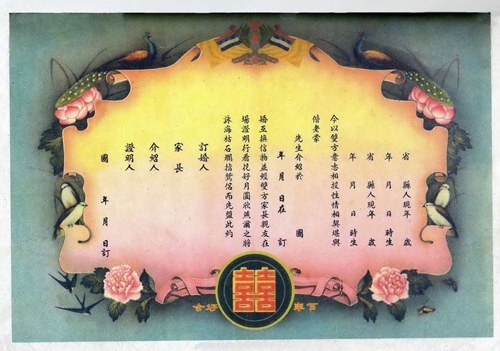 省 縣人現年 歲
年 月 日 時生
省 縣人現年 歲
年 月 日 時生
今以雙方意志相投性情相契堪與
偕老蒙
先生介紹於 國
年 月 日在 訂
婚互換信物並經雙方家長親友在
場證明行看花好月圓欣燕爾之將
詠海枯石爛指鴛侶而先盟此約
訂婚人
家長
介紹人
證明人
國 年 月 日訂
百年 囍 好合